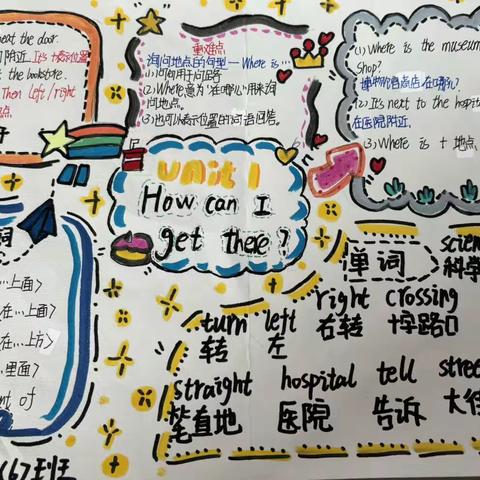 near the door.
It's +表示位置
the bookstore.
Then left/right
重难点
询问地点的句型一Where is…
①问句用于问路
②Where意为"在哪儿"用来询
问地点。
(1) Where is the museum
shop?
博物馆商店在哪儿?
(2) It's next to the hospital
在医院附近.
(3) Where is + 地点
Unit 1
How can I
get there?
词
…上面>
在…上面>
在…上方>
里面>
of
单词
科学
turn left
转 左
right crossing
右转 十字路口
straight hospital tell
笔直地 医院 告诉
(6)班